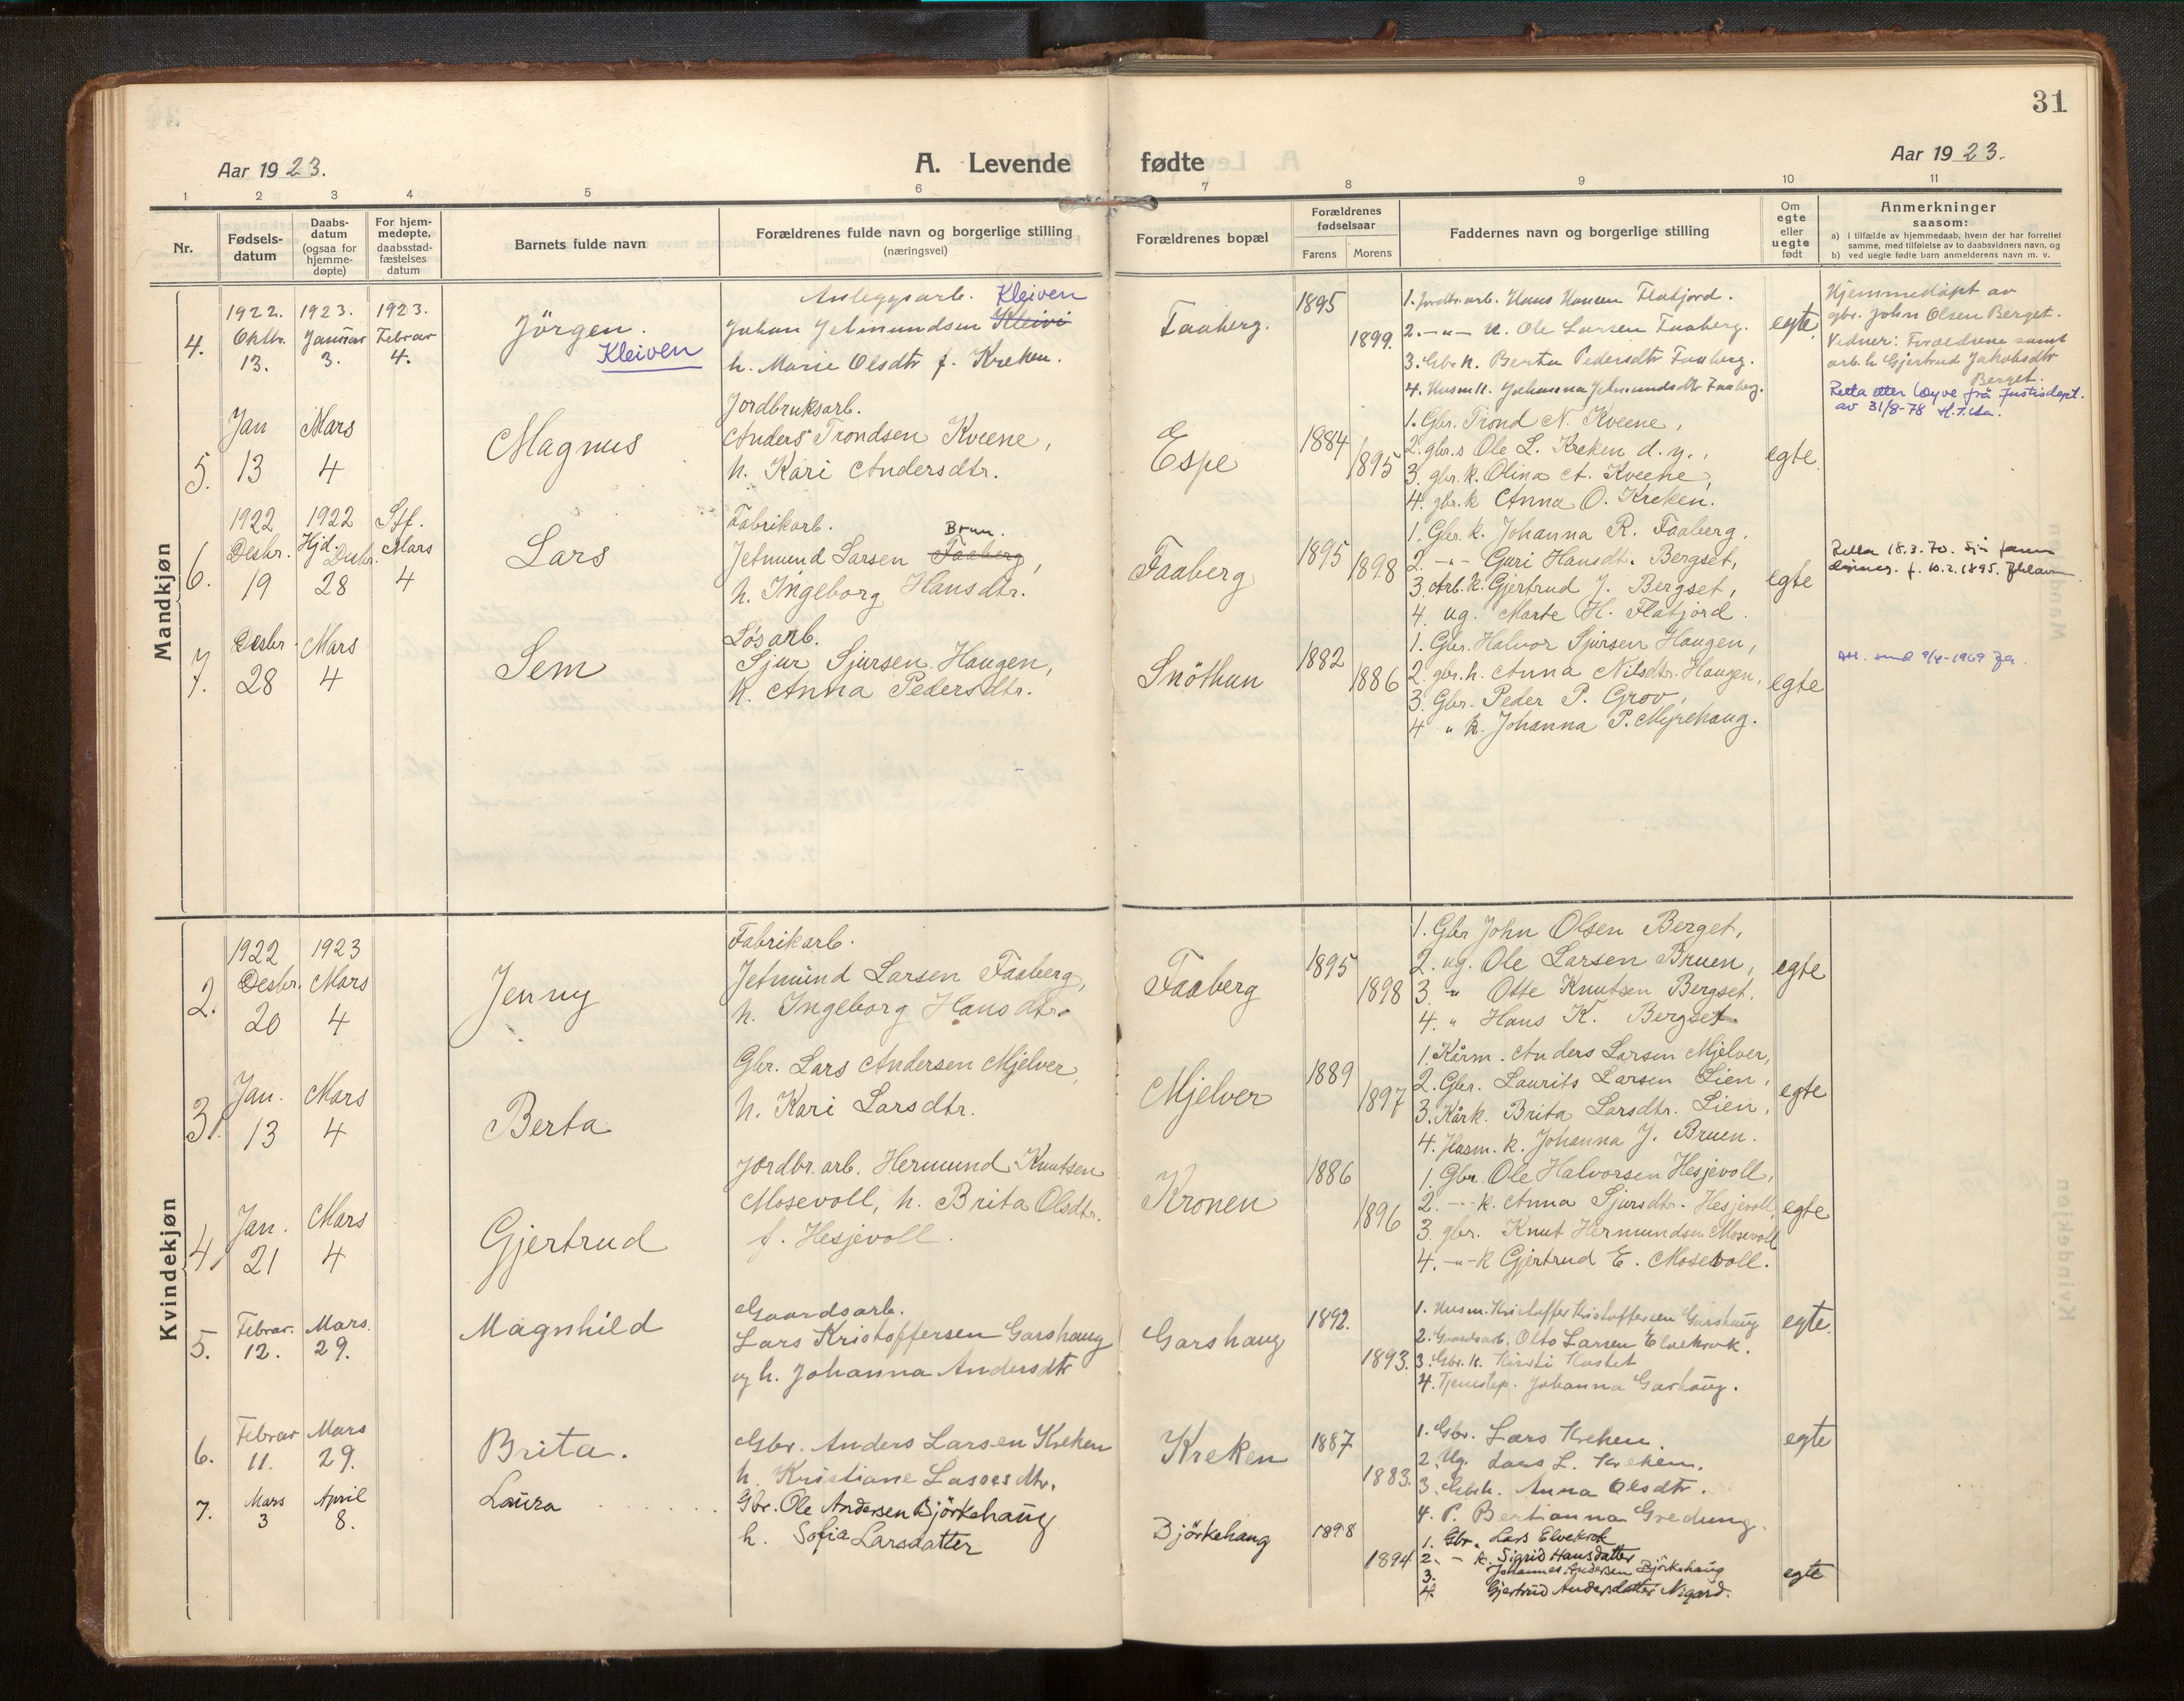 31
Aar 1923.
A. Levende fødte
Aar 1923.
1 2 3 4 5 6 7 8 9 10 11
Nr.
Fødsels-
datum
Daabs-
datum
(ogsaa for
hjemme-
døpte)
For hjem-
medøpte,
daabsstad-
fæstelses
datum
Barnets fulde navn
Forældrenes fulde navn og borgerlige stilling
(næringsvei)
Forældrenes bopæl
Forældrenes
fødselsaar
Farens Morens
Faddernes navn og borgerlige stilling
Om
egte
eller
uegte
født
Anmerkninger
saasom:
a) i tilfælde av hjemmedaab, hvem der har forrettet
samme, med tilføielse av to daabsvidners navn, og
b) ved uegte fødte barn anmelderens navn m. v.
Mandkjøn
4.
1922.
Oktbr.
13.
1923.
Januar
3.
1923.
Februar
4.
Jörgen.
Kleiven
Anleggsarb. Kleiven
Johan Jetmundsen Kleivi
h. Marie Olsdtr f. Kreken.
Faaberg.
1895
1899.
1. Jordbr.arb. Hans Hansen Flatjord.
2. -"- Ole Larsen Faaberg.
3. Gbr. k. Berta Pedersdtr Faaberg.
4. Husm k. Johanna Jetmundsdtr Faaberg.
egte.
Hjemmedöpt av
gbr. John Olsen Berget.
Vidner: Foreldrene samt
arb. h. Gjertrud Jakobsdtr
Berget.
Retta etter löyve frå Justisdept.
av 31/8-78
5.
Jan
13
Mars
4
Magnus
Jordbruksarb.
Anders Trondsen Kveene,
h. Kari Andersdtr.
Espe
1884
1895
1. Gbr. Trond N. Kveene,
2. gbr.s Ole L. Kreken d. y.,
3. gbr. k. Olina A. Kveene,
4. gbr. k Anna O. Kreken.
egte.
6.
1922
Desbr.
19
1922
Hjd. Desbr.
28
Stf.
Mars
4
Lars
Fabrikarb.
Brun.
Jetmund Larsen Faaberg,
h. Ingeborg Hansdtr.
Faaberg
1895
1898
1. Gbr. k. Johanna R. Faaberg,
2. -"- Guri Hansdtr. Bergset,
3. Arb. k. Gjertrud J. Bergset,
4. ug. Marte H. Flatjord.
egte
Retta 18.3.70.
f. 10.2.1895.
7.
Desbr.
28
Mars
4
Sem
Løsarb.
Sjur Sjursen Haugen,
h. Anna Pedersdtr.
Snöthun
1882
1886
1. Gbr. Halvor Sjursen Haugen,
2. gbr. h. Anna Nilsdtr. Haugen,
3. Gbr. Peder P. Grov,
4 " k. Johanna P. Myrehaug.
egte
Att. send 9/4-1969
Kvindekjøn
2.
1922
Desbr.
20
1923
Mars
4
Jenny
Fabrikarb.
Jetmund Larsen Faaberg,
h. Ingeborg Hansdtr.
Faaberg
1895
1898
1. Gbr John Olsen Berget,
2. ug. Ole Larsen Bruen,
3. " Otte Knutsen Bergset.
4. " Hans K. Bergset.
egte
3.
Jan.
13
Mars
4
Berta
Gbr. Lars Andersen Mjelver,
h. Kari Larsdtr.
Mjelver
1889
1897
1. Kårm. Anders Larsen Mjelver,
2. Gbr. Laurits Larsen Lien,
3. Kårk. Brita Larsdtr. Lien,
4. Husm. k. Johanna J. Bruen.
egte
4.
Jan.
21
Mars
4
Gjertrud
Jordbr. arb. Hermund Knutsen
Mosevoll, h. Brita Olsdtr.
f. Hesjevoll.
Kronen
1886
1896
1. Gbr. Ole Halvorsen Hesjevoll,
2. -"- k. Anna Sjursdtr. Hesjevoll,
3. gbr. Knut Hermundsen Mosevoll
4. -"- k Gjertrud E. Mosevoll.
egte
5.
Februar.
12.
Mars.
29.
Magnhild
Gaardsarb.
Lars Kristoffersen Garshaug
og h. Johanna Andersdtr
Garshaug
1892.
1893.
1. Husm. Kristoffer Kristoffersen Garshaug
2. Gaardsarb. Otto Larsen Elvekrok.
3. Gbr. k. Kirsti Kastet
4. Tjenestep. Johanna Garhaug.
egte.
6.
Februar
11.
Mars
29.
Brita.
Gbr. Anders Larsen Kreken
h. Kristiane Lassesdtr.
Kreken
1887
1883.
1. Gbr. Lars Kreken.
2. Ug. Lars L. Kreken.
3. Gbr.k. Anna Olsdtr.
4. P. Bertianna Gredung.
egte
7.
Mars
3
April
8.
Laura
Gbr. Ole Andersen Björkehaug
h. Sofia Larsdatter
Björkehaug
1898
1894
1. Gbr. Lars Elvekrok
2. - k. Sigrid Hansdatter
3. Johannes Andersen Björkehaug
4. Gjertrud Andersdatter Nigard.
egte